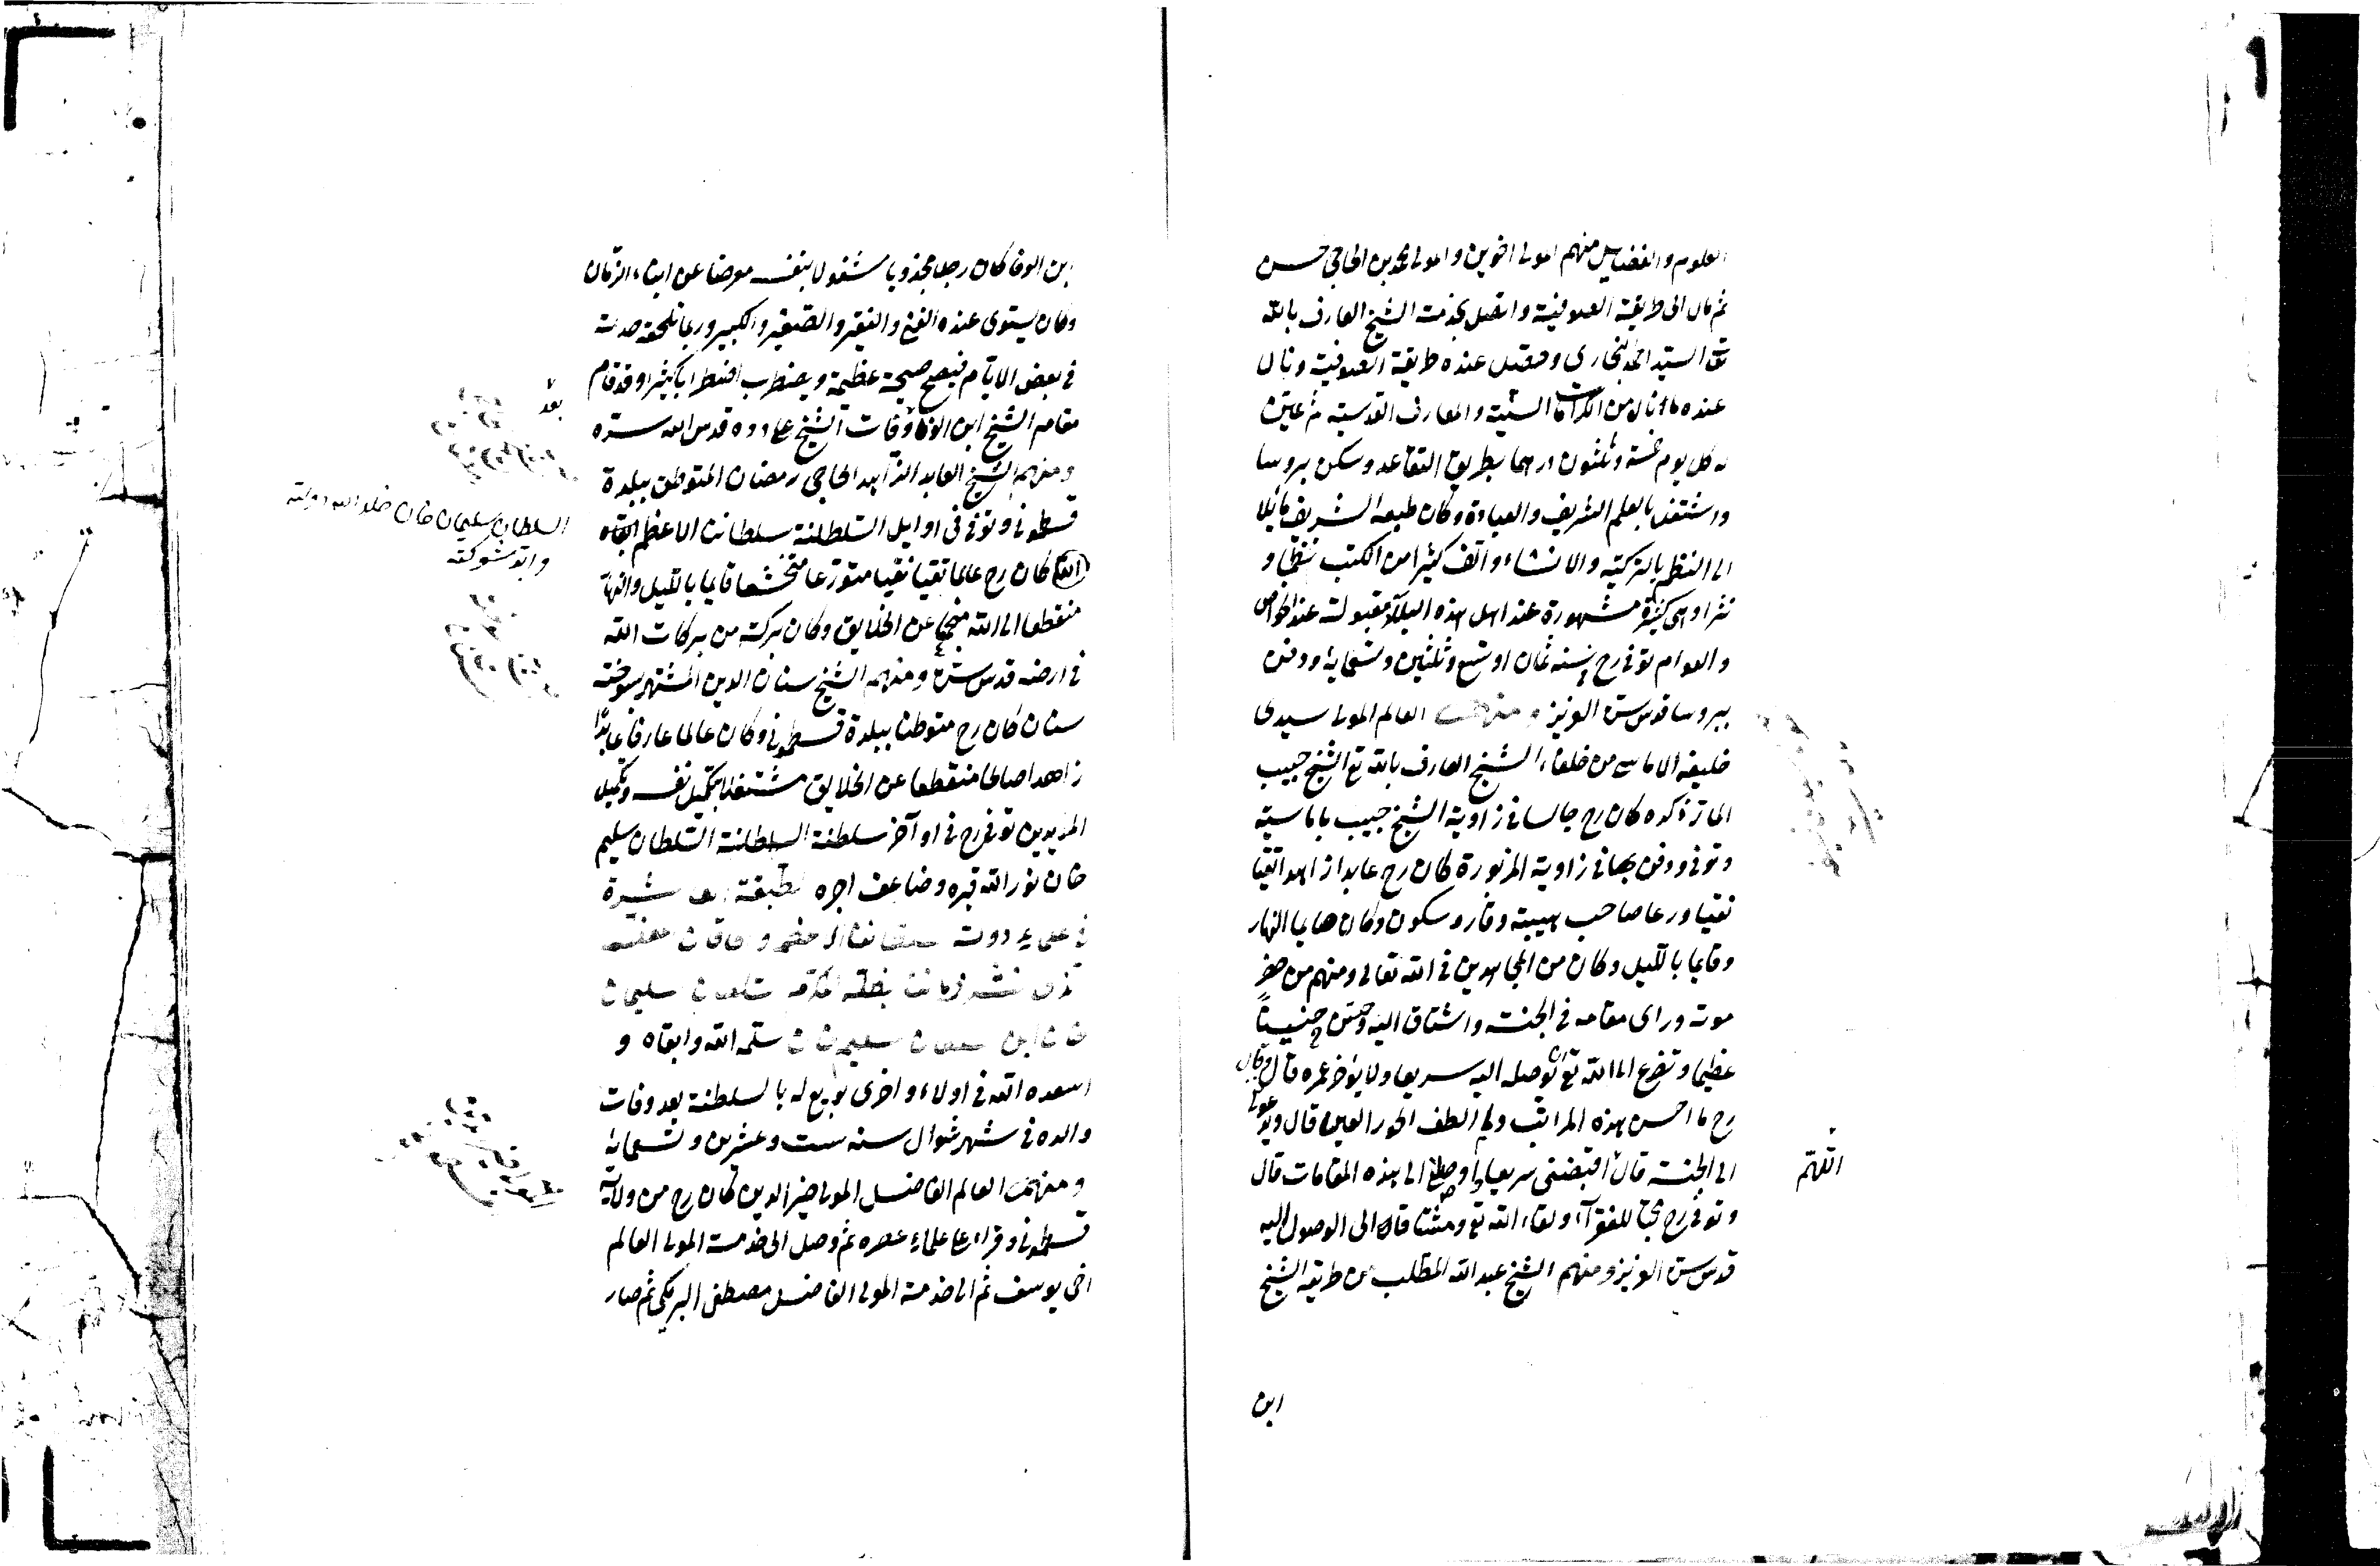 العلوم والفضايل منهم المولى اخوين والمولى محمد بن الحاجى حسن
ثم مال الى طريقة الصوفية واتصل بخدمت الشيخ العارف بالله
تع السيد احمد البخارى وحصل عنده طريقة الصوفية ونال
عنده ما نال من الكرامات السنية والمعارف القدسية ثم عين
له كل يوم خمسة وثلثون درهما بطريق التقاعد وسكن ببروسا
واشتغل بالعلم الشريف والعبادة وكان طبعه الشريف مايلا
الى النظم بالتركية والانشاء والف كثيرا من الكتب نظما و
نثرا وهى كثيرة مشهورة عند اهل هذه البلاد مقبولة عند الخواص
والعوام توفى رح سنة ثمان او تسع وثلثين وتسعماية ودفن
ببروسا قدس سره العزيز ومنهم العالم المولى سيدى
خليفه الاماسى من خلفاء الشيخ العارف بالله تع الشيخ حبيب
المار ذكره كان رح جالسا فى زاوية الشيخ حبيب باماسية
وتوفى ودفن بها فى زاوية المزبورة كان رح عابدا زاهدا تقيا
نقيا ورعا صاحب هيبة وقار وسكون وكان صايما النهار
وقايما بالليل وكان من المجاهدين فى الله تعالى ومنهم من حضر
موته وراى مقامه فى الجنة واشتاق اليه وحن حنينا
عظيما وتضرع الى الله تع ان يوصله اليه سريعا ولا يؤخر عمره قال وقال
رح ما احسن هذه المراتب وما الطف الحور العين قال ويدعونى
الى الجنة قال اللهم اقبضنى سريعا واوصلنى الى هذه المقامات قال
وتوفى رح محبا للفقرآء ولقاء الله تع ومشتاقا الى الوصول اليه
قدس سره العزيز ومنهم الشيخ عبد الله المطلب من طريقة الشيخ
ابن
ابن الوفا كان رجلا مجذوبا مشغولا بنفسه معرضا عن ابناء الزمان
وكان يستوى عنده الغنى والفقير والصغير والكبير وربما تلحقه حدة
فى بعض الايام فيصيح صيحة عظيمة ويضطرب اضطرابا كثيرا وقد قام
مقام الشيخ ابن الوفا بعد وفات الشيخ على دده قدس الله سره
ومنهم الشيخ العابد الزاهد الحاجى رمضان المتوطن ببلدة
قسطمونى وتوفى فى اوايل السلطنة سلطاننا الاعظم
السلطان سليمان خان خلد الله دولته
وابد شوكته
كان رح عالما تقيا نقيا متورعا متخشعا قايما بالليل والنهار
منقطعا الى الله عن الخلايق وكان بركة من بركات الله
فى ارضه قدس سره ومنهم الشيخ سنان الدين المشتهر بسوخته
سنان كان رح متوطنا ببلدة قسطمونى وكان عالما عارفا عابدا
زاهدا صالحا منقطعا عن الخلايق مشتغلا بتكميل نفسه وتكميل
المريدين توفى رح فى اوآخر سلطنة السلطنة السلطان سليم
خان نور الله قبره وضاعف اجره الطبقة العاشرة
فى علماء دولة سلطاننا الاعظم والخاقان المعظم
سلطان سليمان
خان ابن سلطان سليم خان سلمه الله وابقاه و
اسعده الله فى اولاه واخرى بويع له بالسلطنة بعد وفات
والده فى شهر شوال سنه ست وعشرين وتسعمائة
ومنهم العالم الفاضل المولى خير الدين كان رح من ولاية
قسطمونى وقراء على علماء عصره ثم وصل الى خدمت المولى العالم
اخى يوسف ثم الى خدمة المولى الفاضل مصطفى البركى ثم صار